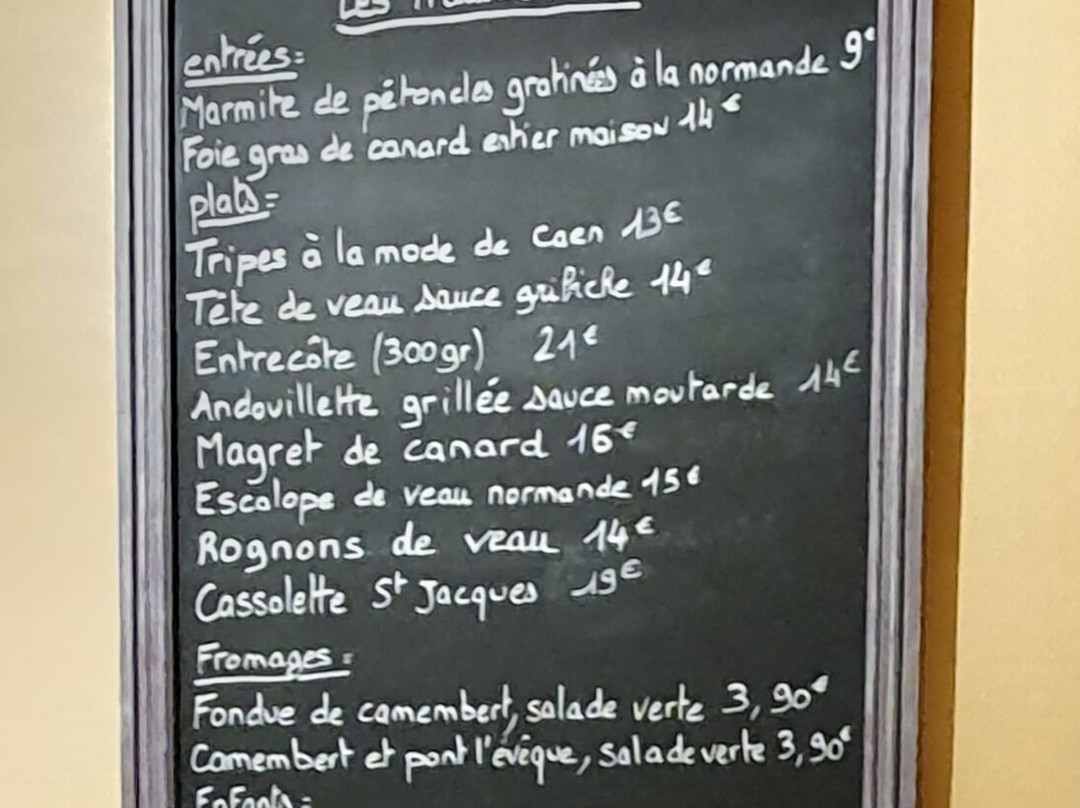 Les
entrées=
Marmite de pétoncles gratinés à la normande 9€
Foie gras de canard entier maison 14€
plats=
Tripes à la mode de Caen 13€
Tête de veau sauce gribiche 14€
Entrecôte (300gr) 21€
Andouillette grillée sauce moutarde 14€
Magret de canard 16€
Escalope de veau normande 15€
Rognons de veau 14€
Cassolette St Jacques 19€
Fromages =
Fondue de camembert, salade verte 3,90€
Camembert et pont l'évêque, salade verte 3,90€
Enfants =